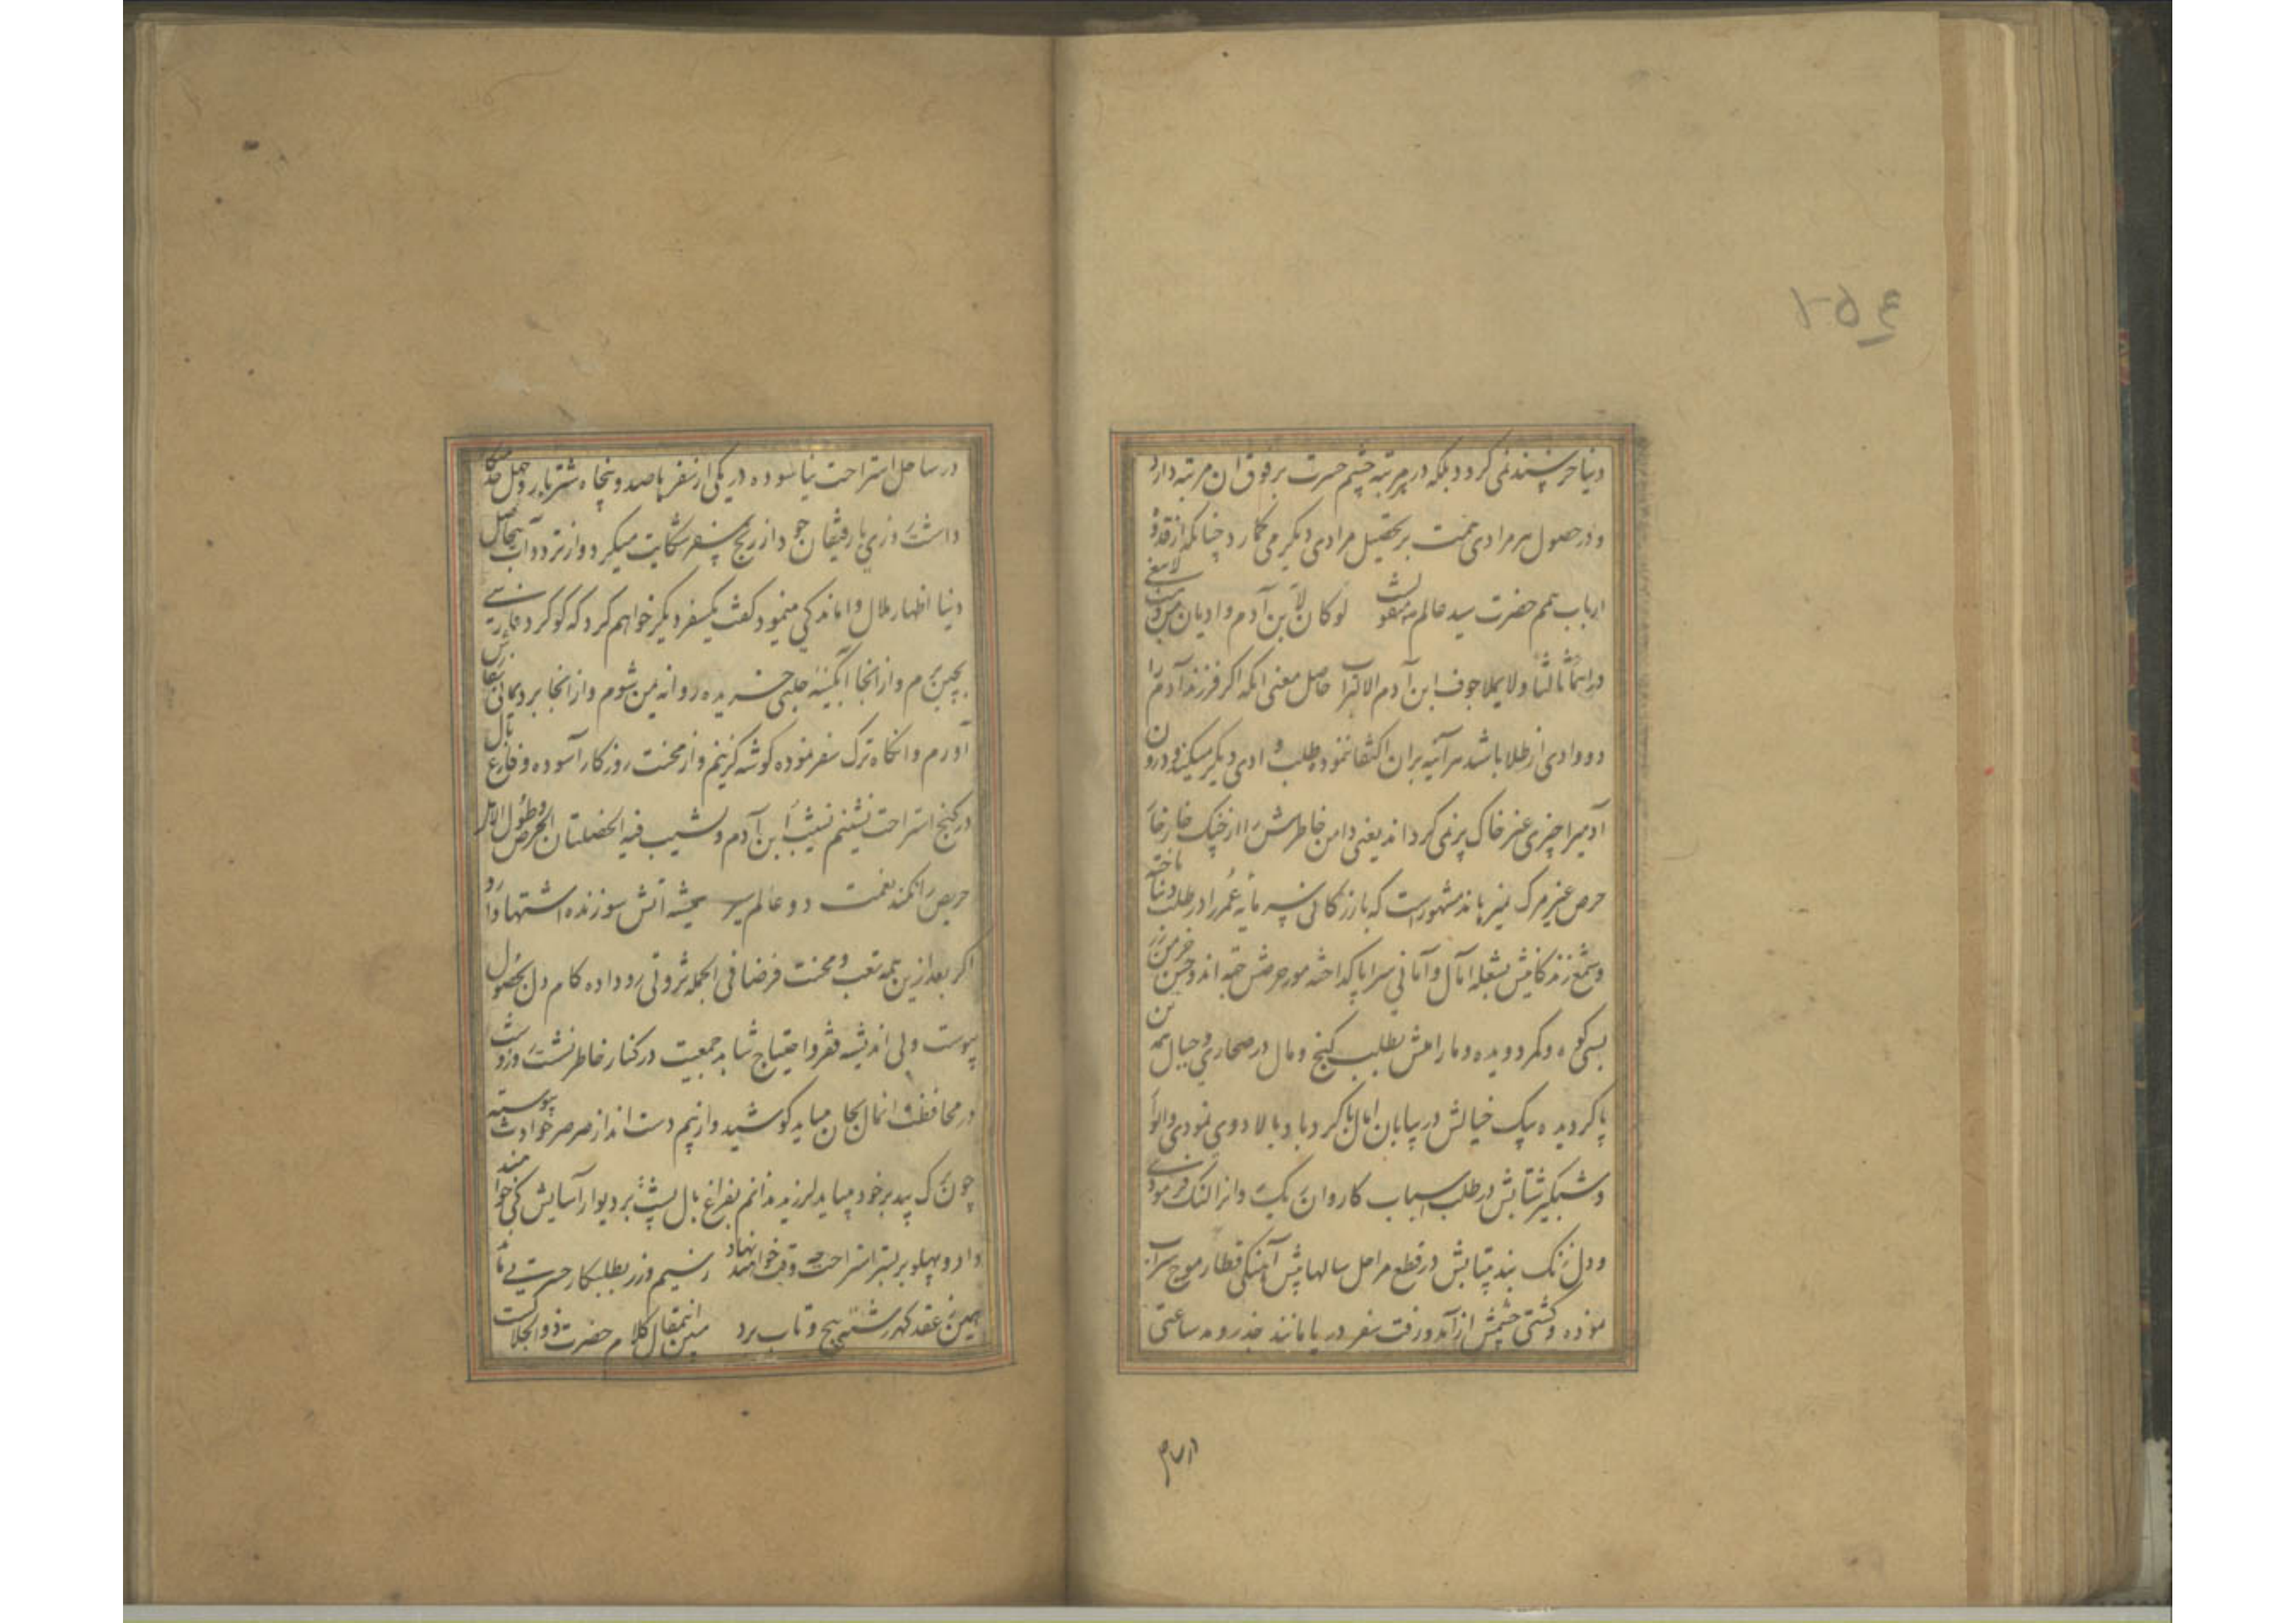 ۲۵۴
دنیا خرسند نمی گردد بلکه در هر مرتبه چشم حسرت بر فوق ان مرتبه دارد
و در حصول هر مرادی همت بر تحصیل مرادی دیگر می کمارد چنانکه از قدوهٔ
ارباب همم حضرت سید عالم منقولست لو کان لابن آدم وادیان من ذهب لابتغی
وراءهما ثالثا و لا یملا جوف ابن آدم الا التراب حاصل معنی انکه اکر فرزند آدم را
دو وادی از طلا باشد هر آینه بران اکتفا ننموده طلب وادی دیگر میکند و درون
آدمیرا چیزی غیر خاک پر نمی کرداند یعنی دامن خاطرش را از چنک خار خار
حرص غیر مرک نمیرهاند مشهورست که بازرکانی سرمایه عمر را در طلب دنیا باخته
و شمع زندکانیش بشعله آمال و امانی سراپا کداخته مور حرصش جهة اندوختن خرمن زر
بسی کوه و کمر دویده و مار املش بطلب کنج و مال در صحاری و جبال همه تن
پا کردیده پیک خیالش در بیابان امل با کردباد بالا دوی نمودی و
و شبکیر شتابش در طلب اسباب کاروان ریک وانرا لنک فرمودی
و دل تنک بند بیتابش در قطع مراحل سالها پیش آهنکی قطار موج سراب
نموده و کشتی چشمش از آمد و رفت سفر دریا مانند جذر و مد ساعتی
در ساحل
در ساحل استراحت نیاسوده در یکی از سفرها صد و پنجاه شتر بار و چهل خدمتکار
داشت روزی با رفیقان خود از رنج سفر شکایت میکرد و از تردد اسباب بیحاصل
دنیا اظهار ملال و اماندکی مینمود کفت یکسفر دیگر خواهم کرد که کوکرد فارسی
بچین برم و از انجا آبکینه حلبی خریده روانه یمن شوم و از انجا برد یمانی بفارس
آورم و انکاه ترک سفر نموده کوشه کزینم و از محنت روزکار آسوده و فارغ بال
در کنج استراحت نشینم یشیب ابن آدم و یشیب فیه الخصلتان الحرص و طول الامل
حریص را نکند نعمت دو عالم سیر همیشه آتش سوزنده اشتها دارد
اکر بعد ازین همه تعب و محنت فرضا فی الجمله ثروتی رو داده کام دل بحصول
پیوست ولی اندیشه فقر و احتیاج شاهد جمعیت در کنار خاطر نشست
در محافظت ان مال بجان میباید کوشید و از بیم دست انداز صرصر حوادث پیوسته
چون برک بید بر خود میباید لرزید ندانم بفراغ بال پشت بر دیوار آسایش کی خواهند
داد و پهلو بر بستر استراحت چه وقت خواهند نهاد ز سیم و زر بطلبکار حسرتی ماند
همین ز عقد کهر رشته پیچ و تاب برد مبین انمقال کلام حضرت ذو الجلالست